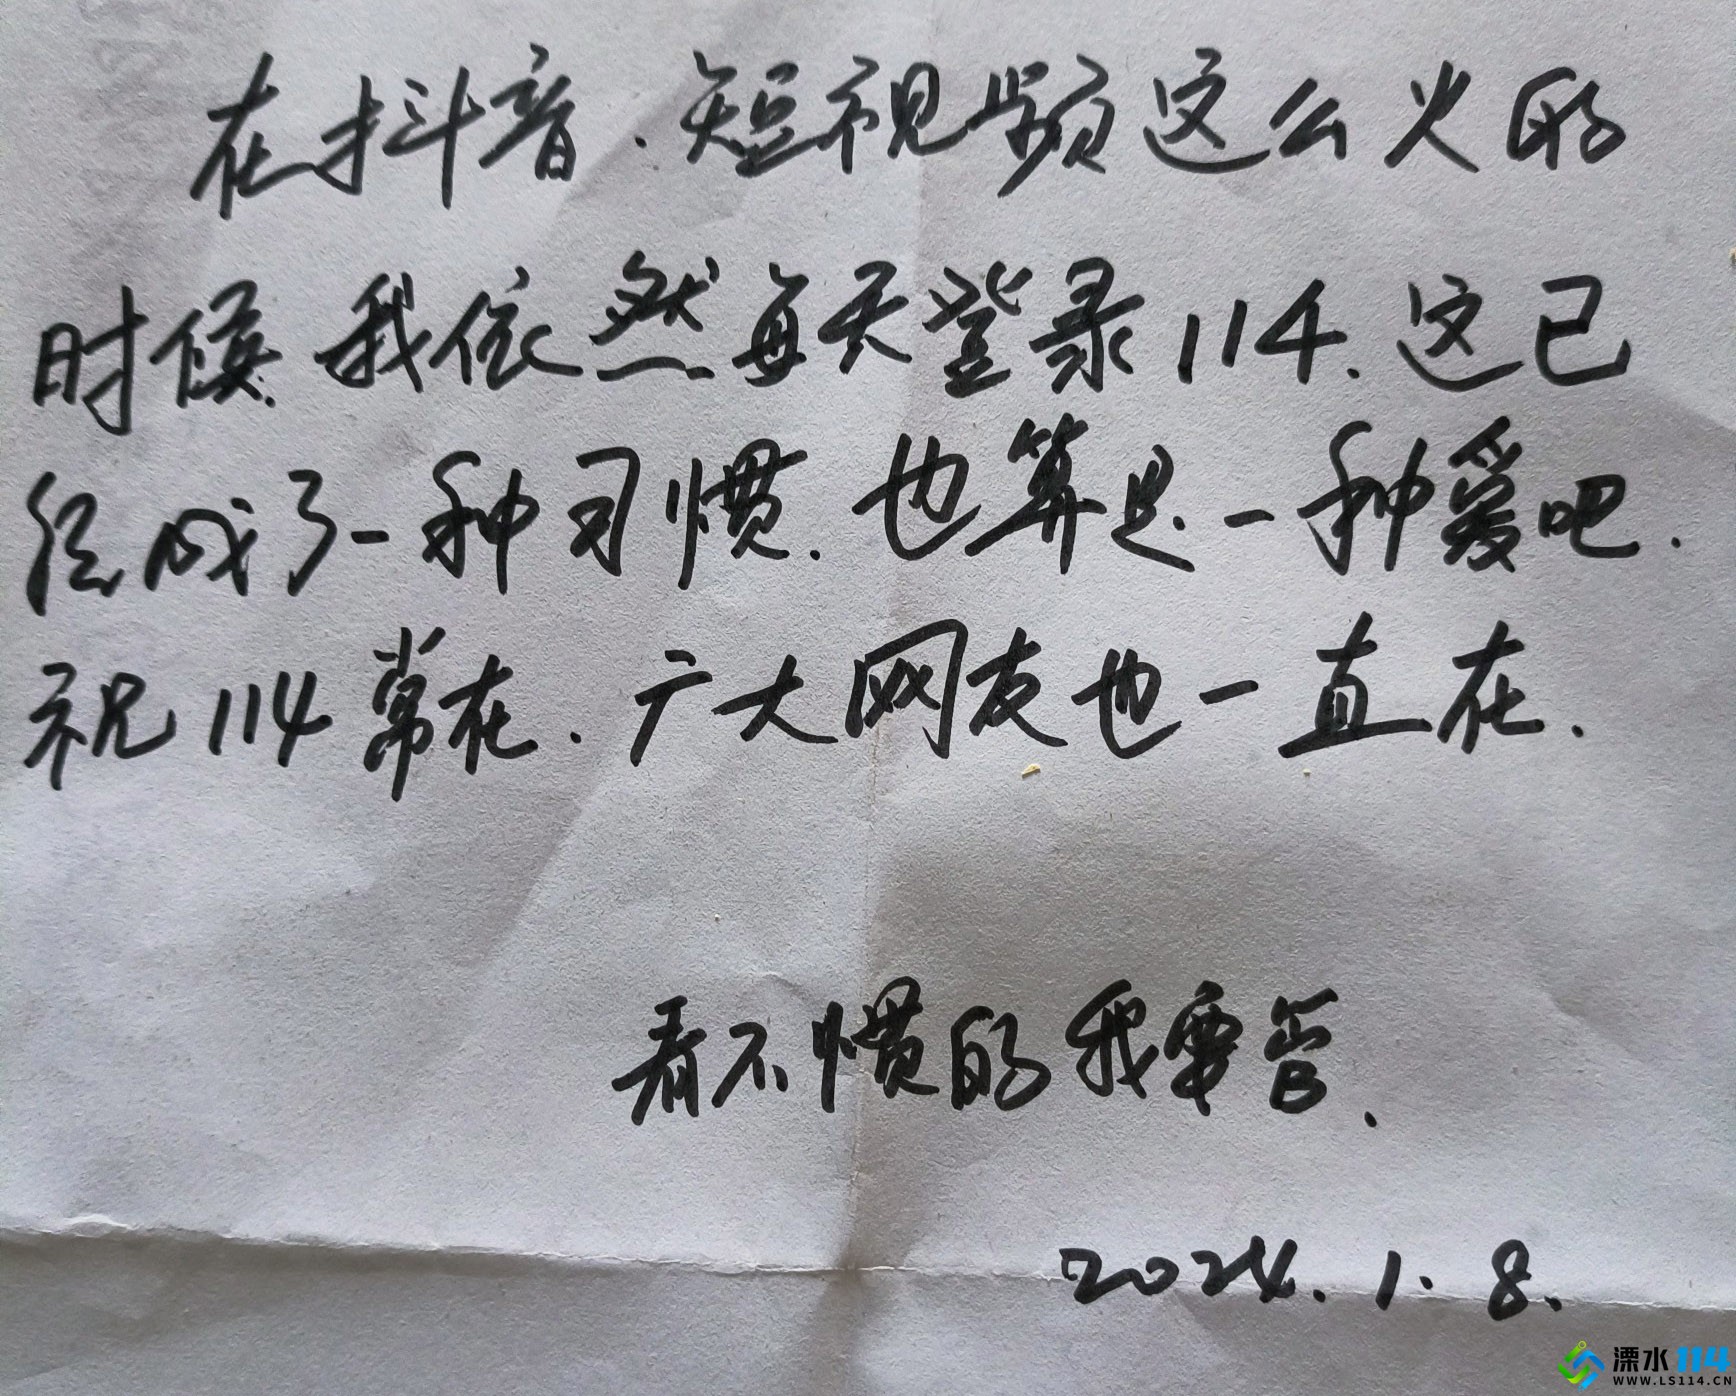 在抖音.短视频这么火的
时候.我依然每天登录114.这已
经成了一种习惯.也算是一种爱吧.
祝114常在.广大网友也一直在.
看不惯的我要管.
2024.1.8.
溧水114
WWW.LS114.CN